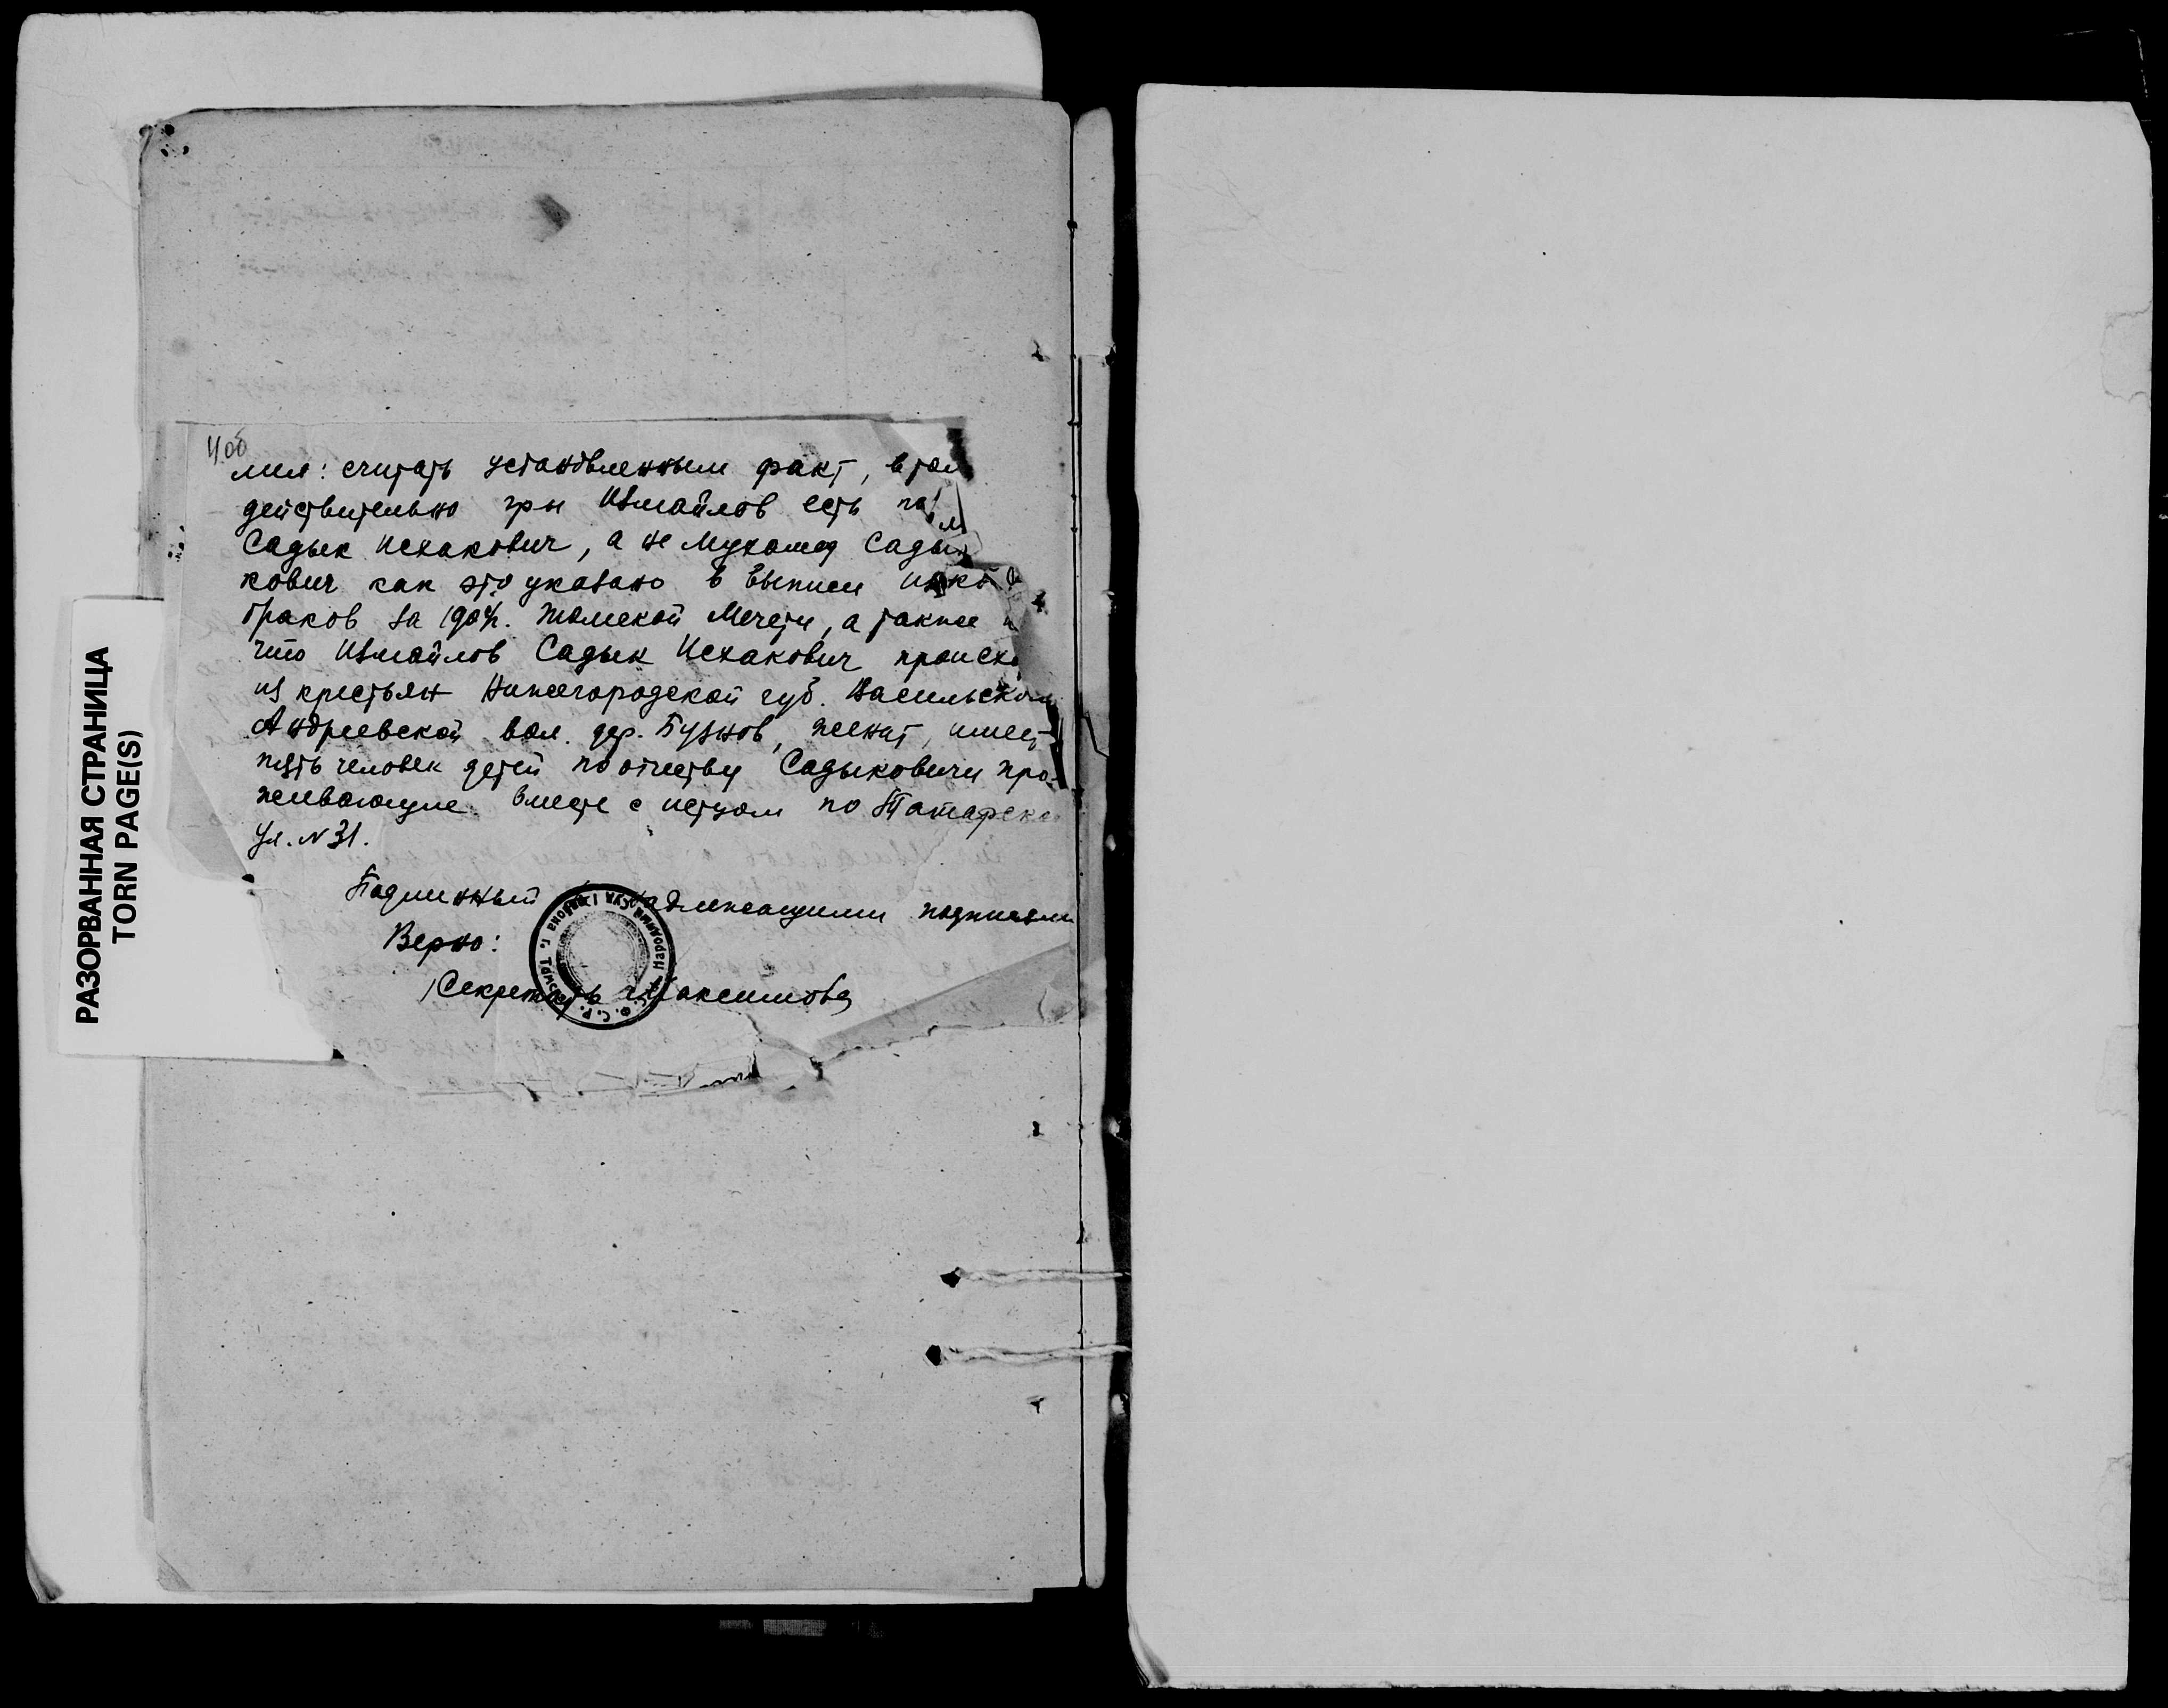 4об
лил: считать установленным факт, в том
действительно гр-н Измайлов есть
Садык Исхакович, а не Мухамед Сады
кович как это указано в выписи
браков за 1904г. Томской Мечети, а также
что Измайлов Садык Исхакович происхо
из крестьян Нижегородской губ. Васильском
Андреевской вол. дер. Бузнов, женат, имеет
пять человек детей по отчеству Садыковичи про-
живающие вместе с истцом по Татарско
ул. N 31.
Подлинный надлежащими подписями
Верно:
Секретарь Максимова
РАЗОРВАННАЯ СТРАНИЦА
TORN PAGE(S)